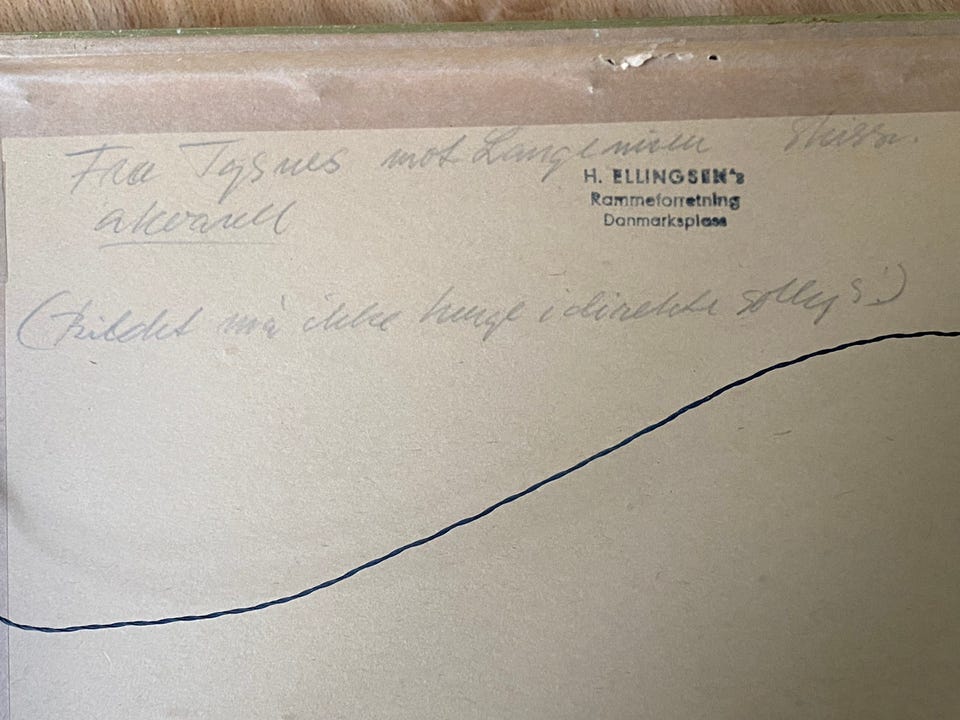 Fra Tysnes mot Langenuen skisse.
akvarell
H. ELLINGSEN's
Rammeforretning
Danmarksplass
(Bildet må ikke henge i direkte sollys!)